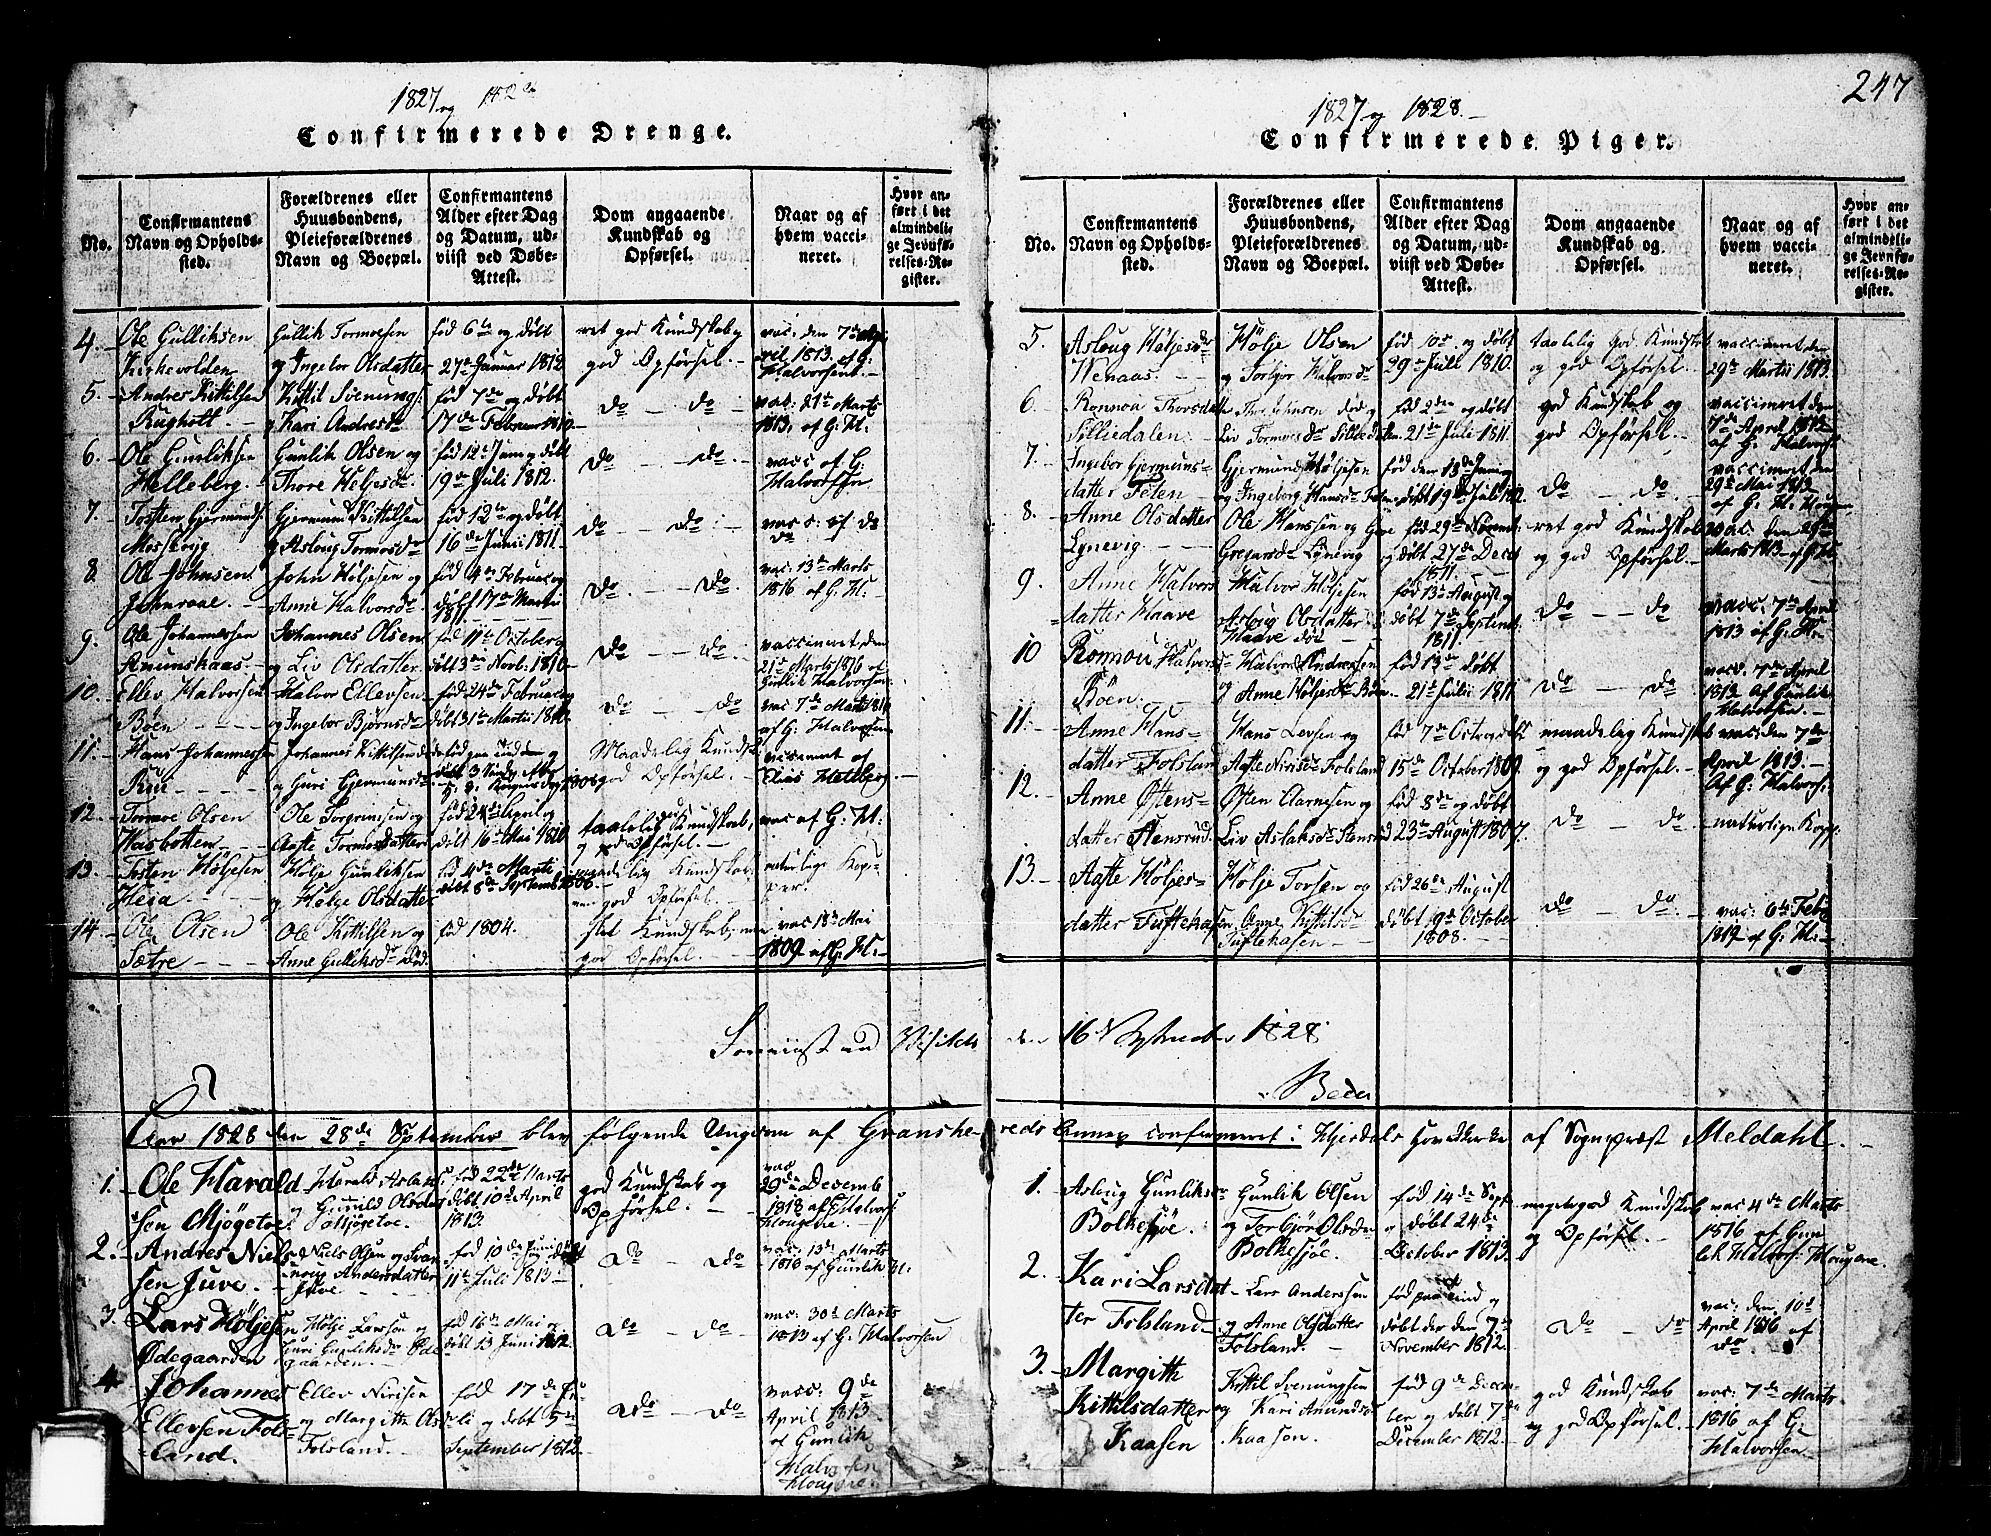 1827 og
Confirmerede Drenge.
No.
Confirmantens
Navn og Opholds-
sted.
Forældrenes eller
Huusbondens,
Pleieforældrenes
Navn og Boepæl.
Confirmantens
Alder efter Dag
og Datum, ud-
viist ved Døbe-
Attest.
Dom angaaende
Kundskab og
Opførsel.
Naar og af
hvem vacci-
neret.
Hvor an-
ført i det
almindeli-
ge Jevnfø-
relses-Re-
gister.
4.
Ole Gulliksen
Kirkevolden
Gullik Tormoesen
og Ingebor Olsdatter
fød 6te og døbt
27de Januar 1812
ret god Kundskab og
god Opførsel.
vac. den 7de
1813. af G.
Halvorsen.
5.
Andres Kittilsen
Kittil Svenungs
og Kari Andresdr
fød 7de og døbt
17de Februar
do — do
vac. 21de Marts
1813. af G. H.
6.
Ole Gunliksen
Helleberg.
Gunlik Olsen og
Thore Heljesdr
fød 12te Juni og døbt
19de Juli 1812.
do — do
vacc. af G.
Halvorsen
7.
Tosten Gjermunds
Gjermund Kittilsen
og Asloug Tormosdr
fød 12te og døbt
16de Junii 1811.
do — do
vacc. af do
8.
Ole Johnsen
John Høljesen og
Anne Halvorsdr
fød 4de Februar og
døbt 17de Martii
1811.
do — do
vac. 13de Marts
1816 af G. H.
9.
Ole Johannesen
Johannes Olsen
og Liv Olsdatter
fød 11te October
døbt 3die Novb. 1810
do — do
vaccineret den
21de Marts 1816 af
Gullik Halvorsen
10.
Ellev Halvorsen
Bøen
Halvor Ellevsen
og Ingebor Bjørnsdr
fød 24de Februar og
døbt 31te Martii 1810
do — do
vac. 7de Marts
af G: Halvorsen
11.
Hans Johannessen
Rue
Johannes Kittilsen
og Guri Gjermundsdr
Maadelig Kundsk.
god Opførsel.
vaccineret af
Elias Helberg
12.
Tormoe Olsen
Ole Torgrimsen og
Aaste Tormosdatter
fød 24de April og
døbt 16de Mai 1810
taalelig Kundskab,
og god Opførsel.
vac af G: H:
13.
Tosten Høljesen
Heia
Hølje Gunliksen
og Helge Olsdatter
fød 4de Martii
døbt 8de Septemb 1808.
maadelig Kundskab,
men god Opførsel.
naturlige Kop-
per.
14
Ole Olsen
Sætre
Ole Kittilsen og
Anne Gulliksdr død.
fød 1804.
slet Kundskab, men
god Opførsel.
vac 18de Mai
1809 af G. H.
1827 og 1828.
247
Confirmerede Piger.
No.
Confirmantens
Navn og Opholds-
sted.
Forældrenes eller
Huusbondens,
Pleieforældrenes
Navn og Boepæl.
Confirmantens
Alder efter Dag
og Datum, ud-
viist ved Døbe-
Attest.
Dom angaaende
Kundskab og
Opførsel.
Naar og af
hvem vacci-
neret.
Hvor an-
ført i det
almindeli-
ge Jevnfø-
relses-Re-
gister.
5.
Asloug Høljesdr
Wenaas.
Hølje Olsen
og Torbjør Halvorsdr
fød 10de og døbt
29de Juli 1810.
taalelig god Kundskab
og god Opførsel.
vaccineret den
29de Martii 1813.
6.
Ronnou Thorsdatter
Silliedalen
Liv Tormoesdr
fød 2den og døbt
21de Juli 1811.
god Kundskab og
god Opførsel.
vaccineret den
7de April 1813
af G. Halvors.
7.
Ingebor Gjermunds-
datter Teten
Gjermund Høljesen
og Ingeborg Hansdr
fød den 13de Juni og
døbt 19de Juli 1812
do — do
vaccineret den
29de Mai 1813
8.
Anne Olsdatter
Lynevig
Ole Hanssen og
Gregarsdr Lynevig
fød 29de Novemb:
og døbt 27de Decem
1811.
ret god Kundskab
og god Opførsel.
vac. den 29de
Marts 1813 af G. H.
9.
Anne Halvors
datter Haave
Halvor Høljesen
Asloug Olsdatter
Haave
fød 13de August og
døbt 7de Septemb:
1811
do — do
vacc. 7de April
1813 af G: H:
10
Ronnou Halvors
Bøen.
Halvor Andresen
og Anne Høljesdr Bøen
fød 13de døbt
21de Julii 1811.
do — do
vacc. 7de April
1813 af Gunlik
Halvorsen.
11.
Anne Hans-
datter Folsland
Hans Levsen og
Aaste Nirisdr Folsland
fød 7de Octo og døbt
15de October 1809.
maadelig Kundskab
og god Opførsel.
vac: den 7de
April 1813.
Af G: Halvors:
12.
Anne Østens-
datter Stensrud.
Østen Aarnesen og
Liv Aslaksdr Stensrud
fød 8de og døbt
23de August 1807.
do — do
naturlige Kopp.
13.
Aaste Høljes-
datter Tuftehasen
Hølje Torsen og
Anne Kittilsdr
Tuftehasen
fød 26de August
døbt 19de October
1808.
do — do.
vac: 6te Feb
1819 af G: H:
den 16 September 1828
Aar 1828 den 28de September blev følgende Ungdom af Granshe-
reds Annex confirmeret i Hjerdals Hovedkirke af Sognepræst Meldahl.
1.
Ole Harald
sen Mjøgetve
Harald Aslaks
og Gunild Olsdr
fød 22de Marts
døbt 10de April
1813.
god Kundskab og
Opførsel.
vac
29de Decemb
1818 af G Halvors
Hougene
2.
Andres Niels
sen Juve.
Niels Olsen og
Andersdatter
Juve
fød 10de Juni døbt
11te Juli 1813
do do
vac: 13de Marts
1816 af Gunlik H:
3.
Lars Høljesen
Ødegaarden
Hølje Larsen og
Guri Gunliksdr Øde
gaarden.
fød 16de Mai og
døbt 13 Juni 1812
do — do
vac: 30de Marts
1813 af G: Halvorsen
4
Johannes
Ellevsen Fols-
land.
Ellev Nirisen
og Margith Olsd
Folsland.
fød 17de
og døbt 5te
September 1812
do do
vacc: 9de
April 1813
af Gunlik
Halvorsen
Hougene
1.
Asloug Gunliksdr
Bolkesjøe.
Gunlik Olsen
og Torbjør Olsdr
Bolkesjøe.
fød 14de Sept
og døbt 24de
October 1813.
meget god Kundskab
og Opførsel.
vac 4de Marts
1816 af Gun
lik Halvors: Hougene.
2.
Kari Larsdat
ter Folsland
Lars Anderssen
og Anne Olsdatter
Folsland.
døbt der den 7de
November 1812.
do — do
vac: den 10de
April 1816 af
do
3.
Margith
Kittilsdatter
Kaasen
Kittil Svenungsen
og Kari Amundsdr
Kaasen.
fød 9de Decem-
ber og døbt 7de
December 1812.
god Kundskab
og god Opførsel.
vac: 7de Marts
1816 af G:
Halvorsen